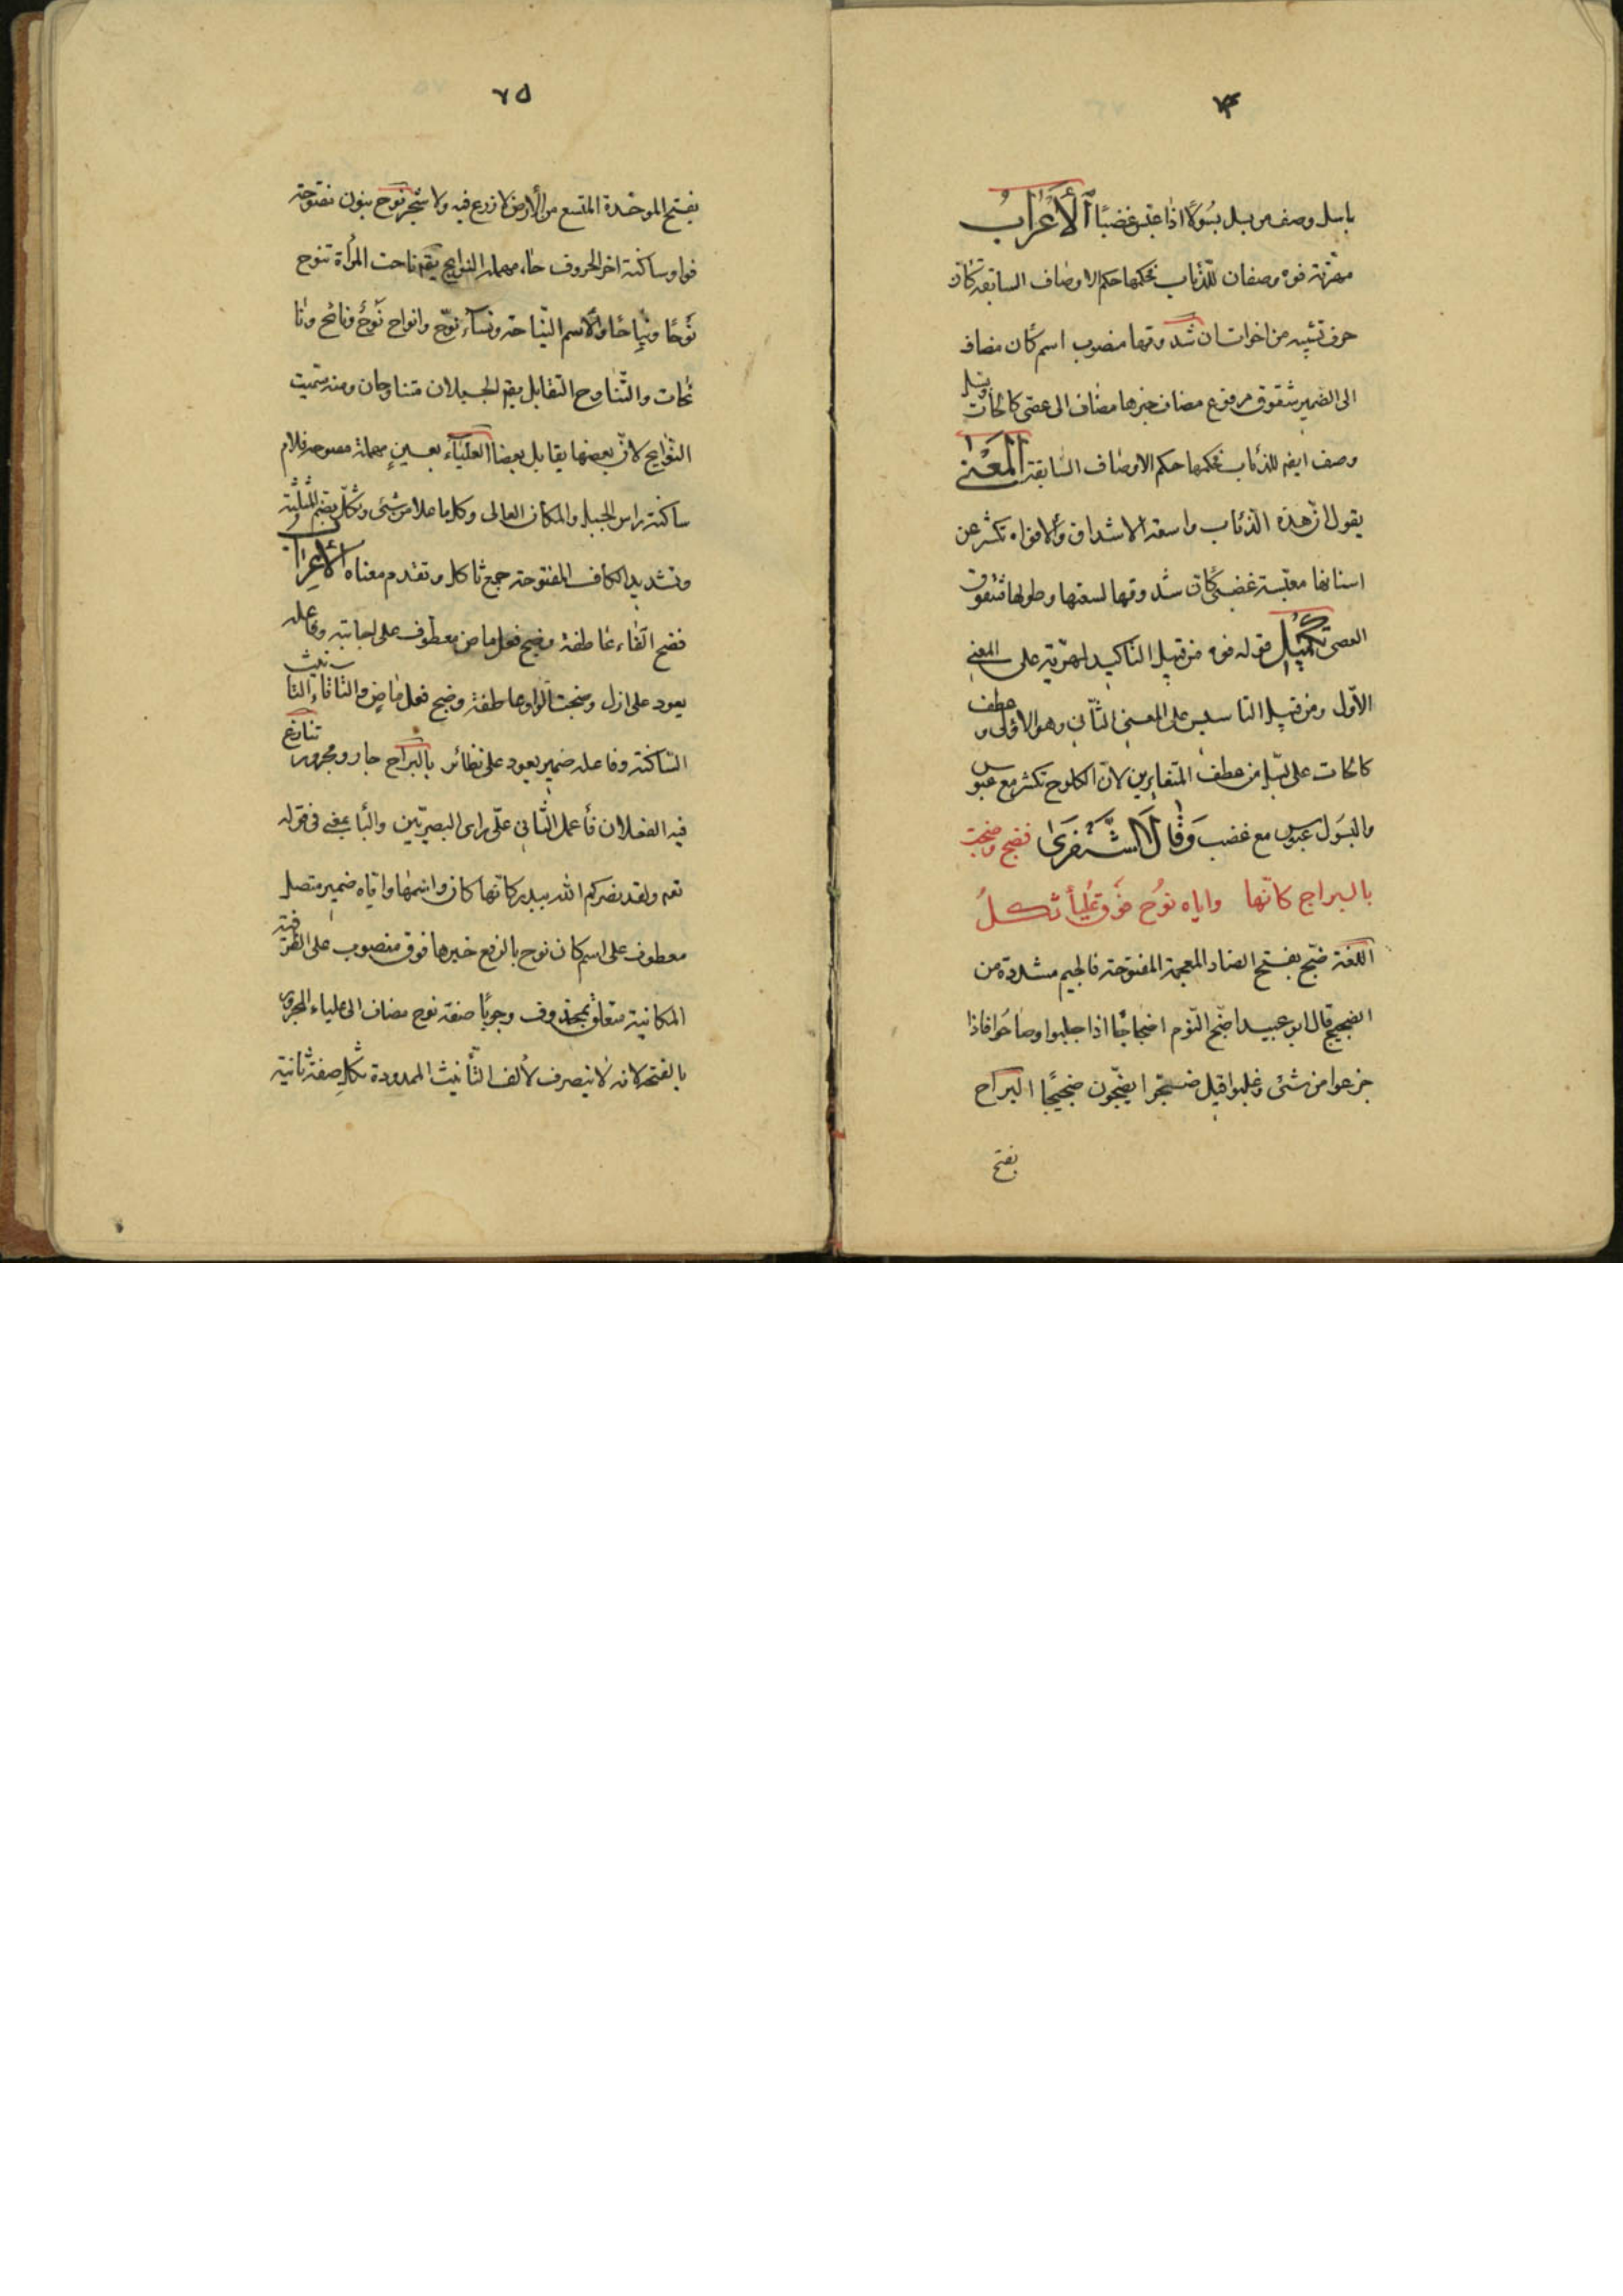 ٧٤
باسل وصف من بسل بسولًا اذا عبس غضبًا الأَعْرَابُ
مهرّتة فوه وصفان للذّئاب فحكمها حكم الاوصاف السابقة كأنّ
حرف تشبيه من اخوات ان شدوقها منصوب اسم كان مضاف
الى الضمير شقوق مرفوع مضاف خبرها مضاف الى عصى كالحات وبسل
وصف ايضه للذئاب فحكمها حكم الاوصاف السّابقة المَعْنٰى
يقول ان هذه الذّئاب واسعة الاشداق والافواه تكشر عن
اسنانها معبّسة غضبى كان شدوقها لسعتها وطولها شقوق
العصى تكميل قوله فوه من قبيل التاكيد لمهرّتة على المعنى
الأوّل ومن قبيل التاسيس على المعنى الثّانى وهو الاولى و عطف
كالحات على بسّل من عطف المتغايرين لانّ الكلوح تكشر مع عبوس
والبسول عبوس مع غضب وَقَالَ الشَّنْفَرٰى فضج وضجت
بالبراح كانّها واياه نوُح فوق علياء ثكلُ
اللغة ضجّ بفتح الضاد المعجمة المفتوحة فالجيم مشددة من
الضجيج قال ابو عبيد اضجّ القوم اضجاجًا اذا جلبوا وصاحوا فاذا
جزعوا من شئ وغلبوا قيل ضجّوا يضجّون ضجيجًا البراح
بفتح
٧٥
بفتح الموحّدة المتسع من الأرض لا زرع فيه ولا شجر نوح بنون مفتوحة
فواو ساكنة اخر الحروف حاء مهملة النوايح يقم ناحت المرأة تنوح
نَوحًا ونِياحًا والأسم النّياحة ونسآء نوّح وانواح نَوحٌ ونائح ونا
ئحات والتّناوح التّقابل يقم الجبلان متناوحان ومنه سمّيت
النّوايح لانّ بعضها يقابل بعضا العليآء بعينٍ مهملة مفتوحة فلام
ساكنة راس الجبل والمكان العالى وكل ما علا من شئ وثكّل بضم المثلّثة
وتشديد الكاف المفتوحة جمع ثاكل وتقدم معناه الأعراب
فضج الفاء عاطفة وضج فعل ماض معطوف على اجابته وفاعله
يعود على ازل وضجت الواو عاطفة وضج فعل ماضٍ والتاء تاء التانيث
السّاكنة وفاعله ضمير يعود على نظائر بالبراح جار ومجرور تنازع
فيه الفعلان فأعمل الثّانى على راى البصريّين والبأ بمعنى فى قوله
تعه ولقد نصركم الله ببدر كانّها كان واسمها واياه ضمير متصل
معطوف على اسم كان نوح بالرفع خبرها فوق منصوب على الظرفية
المكانية متعلق بمحذوف وجوبًا صفة نوح مضاف الى علياء المجرور
بالفتحه لانه لا ينصرف لألف التّأنيث الممدودة ثكّل صفة ثانية